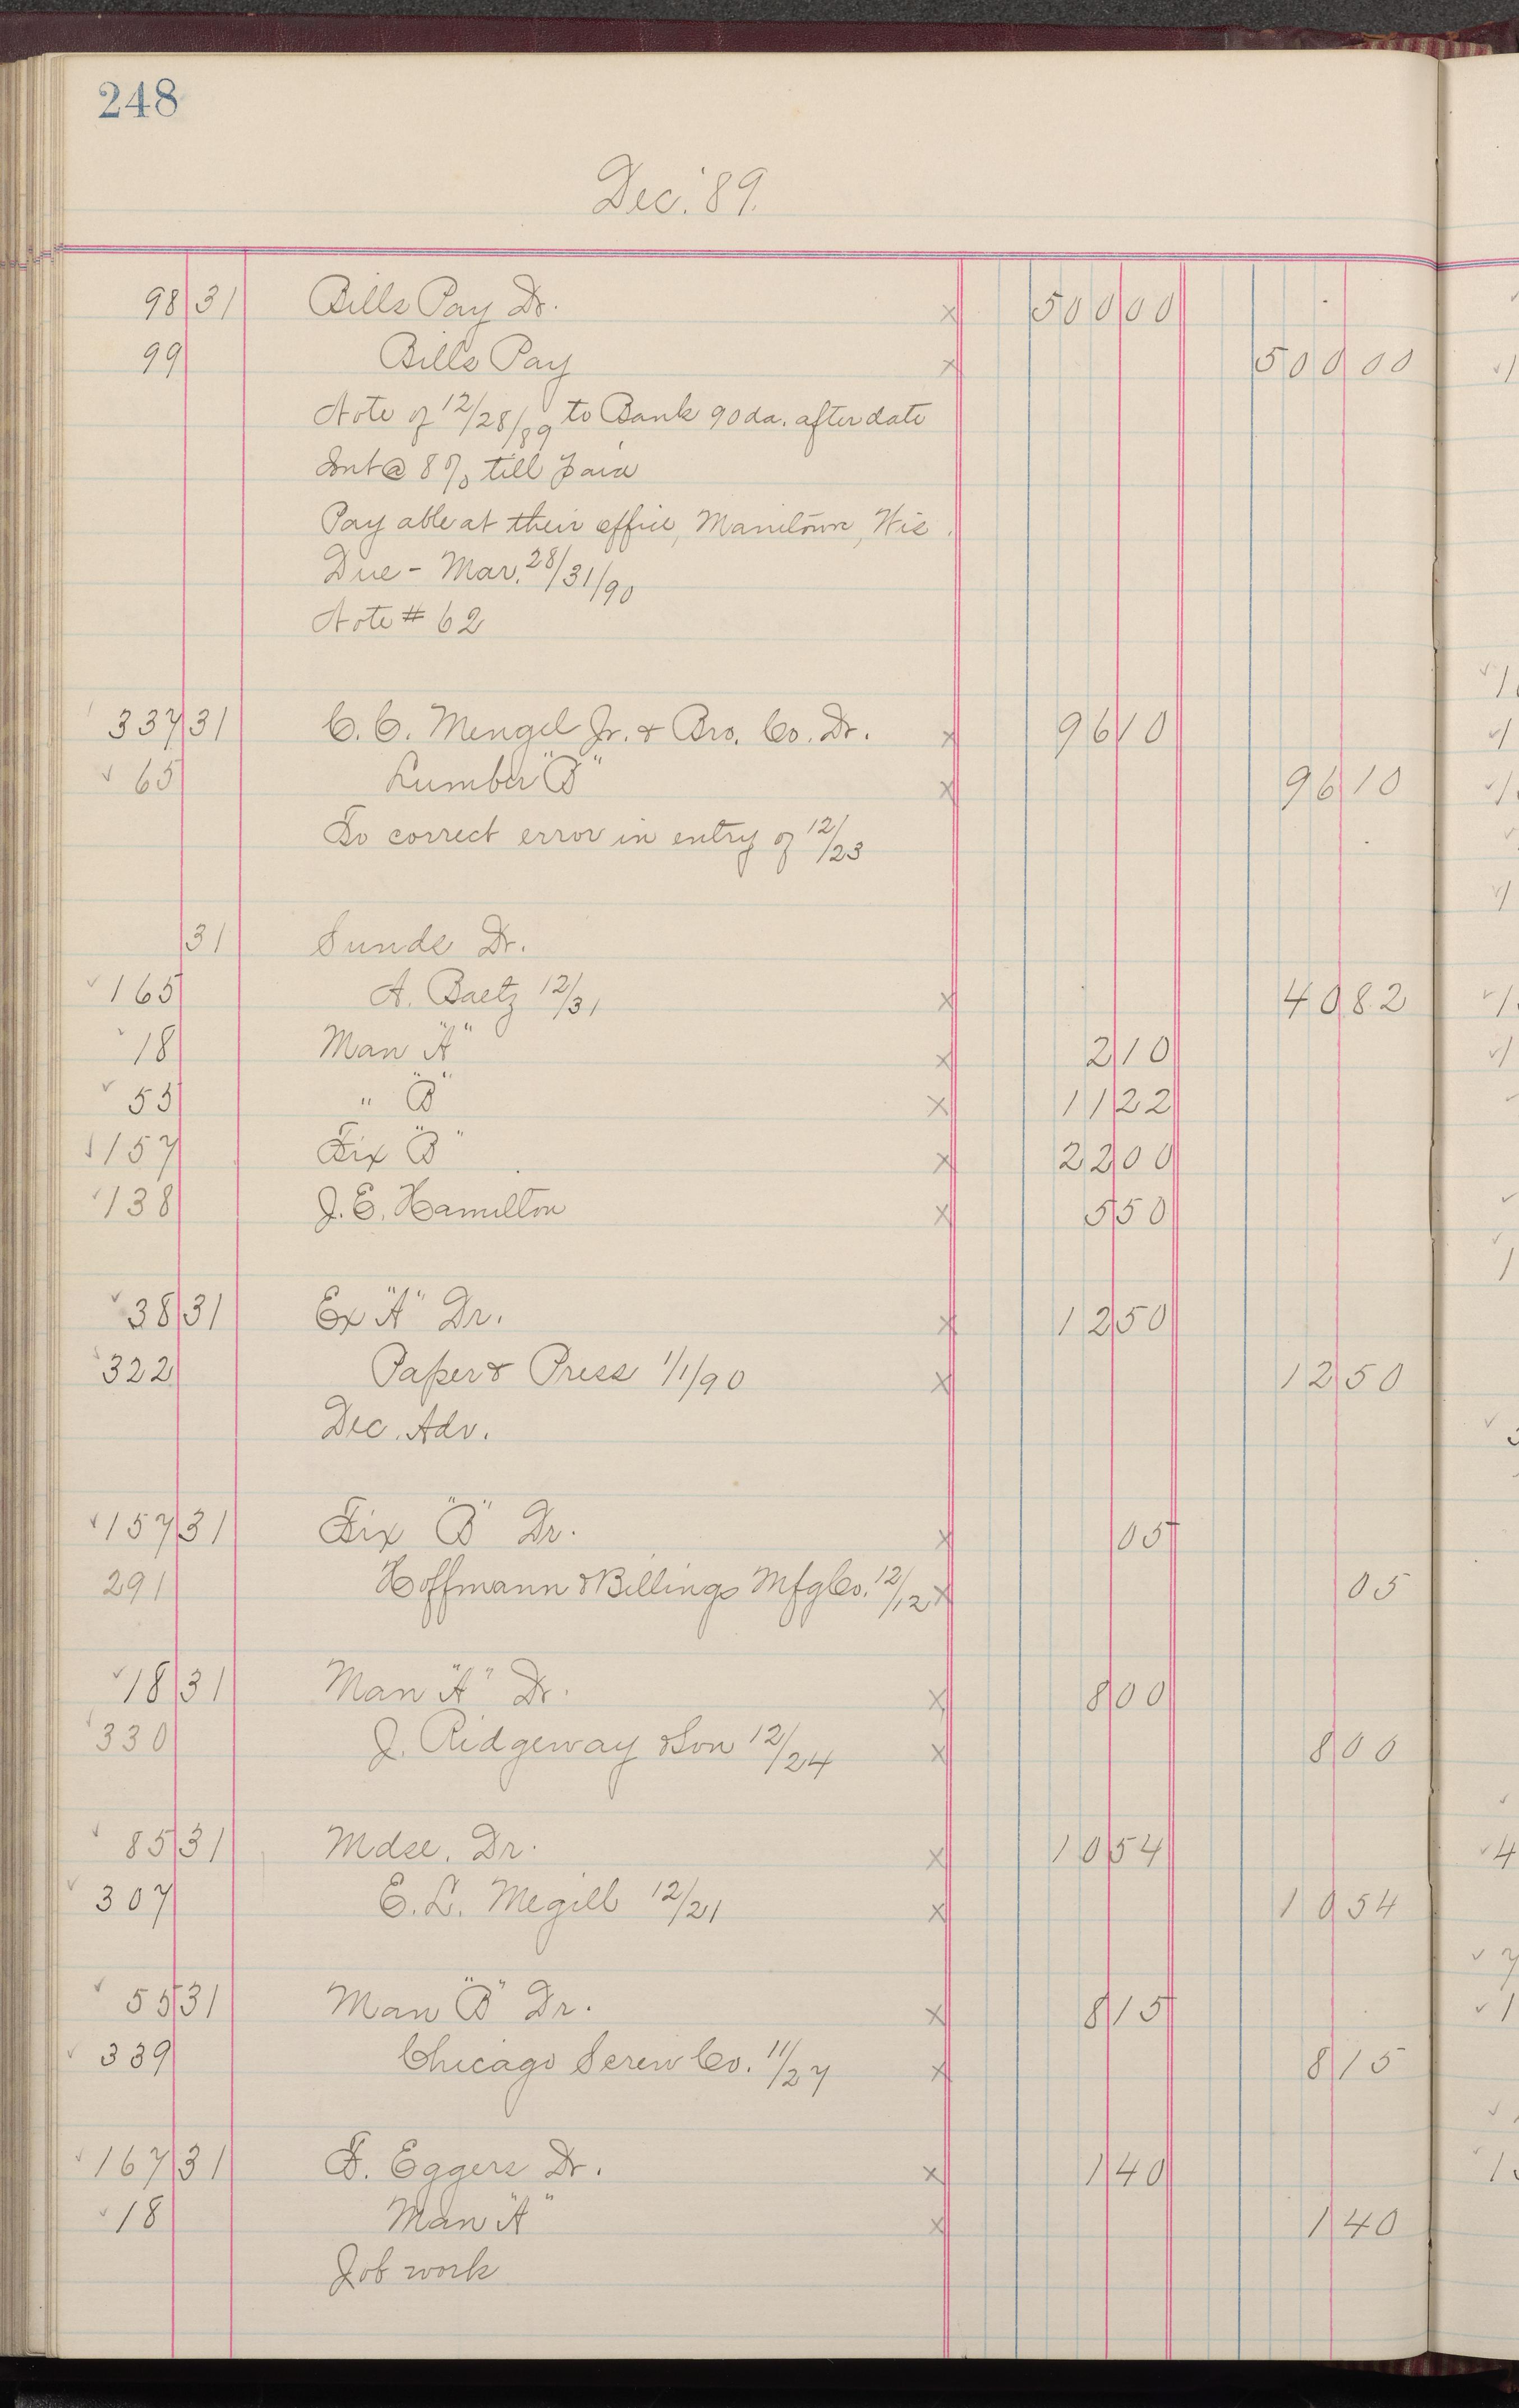 248
Dec. '89.
98 31 Bills Pay Dr. x 500 00
99 Bills Pay x 500 00
Note of 12/28/89 to Bank 90 da. after date
Int @ 8% till paid
Payable at their office, Manitowoc, Wis.
Due - Mar. 28/31/90
Note # 62
337 31 C. C. Mengel Jr. & Bro. Co. Dr. x 96 10
✓ 65 Lumber "B" x 96 10
To correct error in entry of 12/23
31 Sunds Dr.
✓ 165 A. Baetz 12/31 x 40 82
✓ 18 Man "A" x 2 10
✓ 55 " "B" x 11 22
✓ 157 Fix "B" x 22 00
✓ 138 J. E. Hamilton x 5 50
✓ 38 31 Ex "A" Dr. x 12 50
✓ 322 Paper & Press 1/1/90 x 12 50
Dec. Adv.
✓ 157 31 Fix "B" Dr. x 05
291 Hoffmann & Billings Mfg Co. 12/12 x 05
✓ 18 31 Man "A" Dr. x 8 00
✓ 330 J. Ridgeway & Son 12/24 x 8 00
✓ 85 31 Mdse. Dr. x 10 54
✓ 307 E. L. Megill 12/21 x 10 54
✓ 55 31 Man "B" Dr. x 8 15
✓ 339 Chicago Screw Co. 11/27 x 8 15
✓ 167 31 F. Eggers Dr. x 1 40
✓ 18 Man "A" x 1 40
Job work